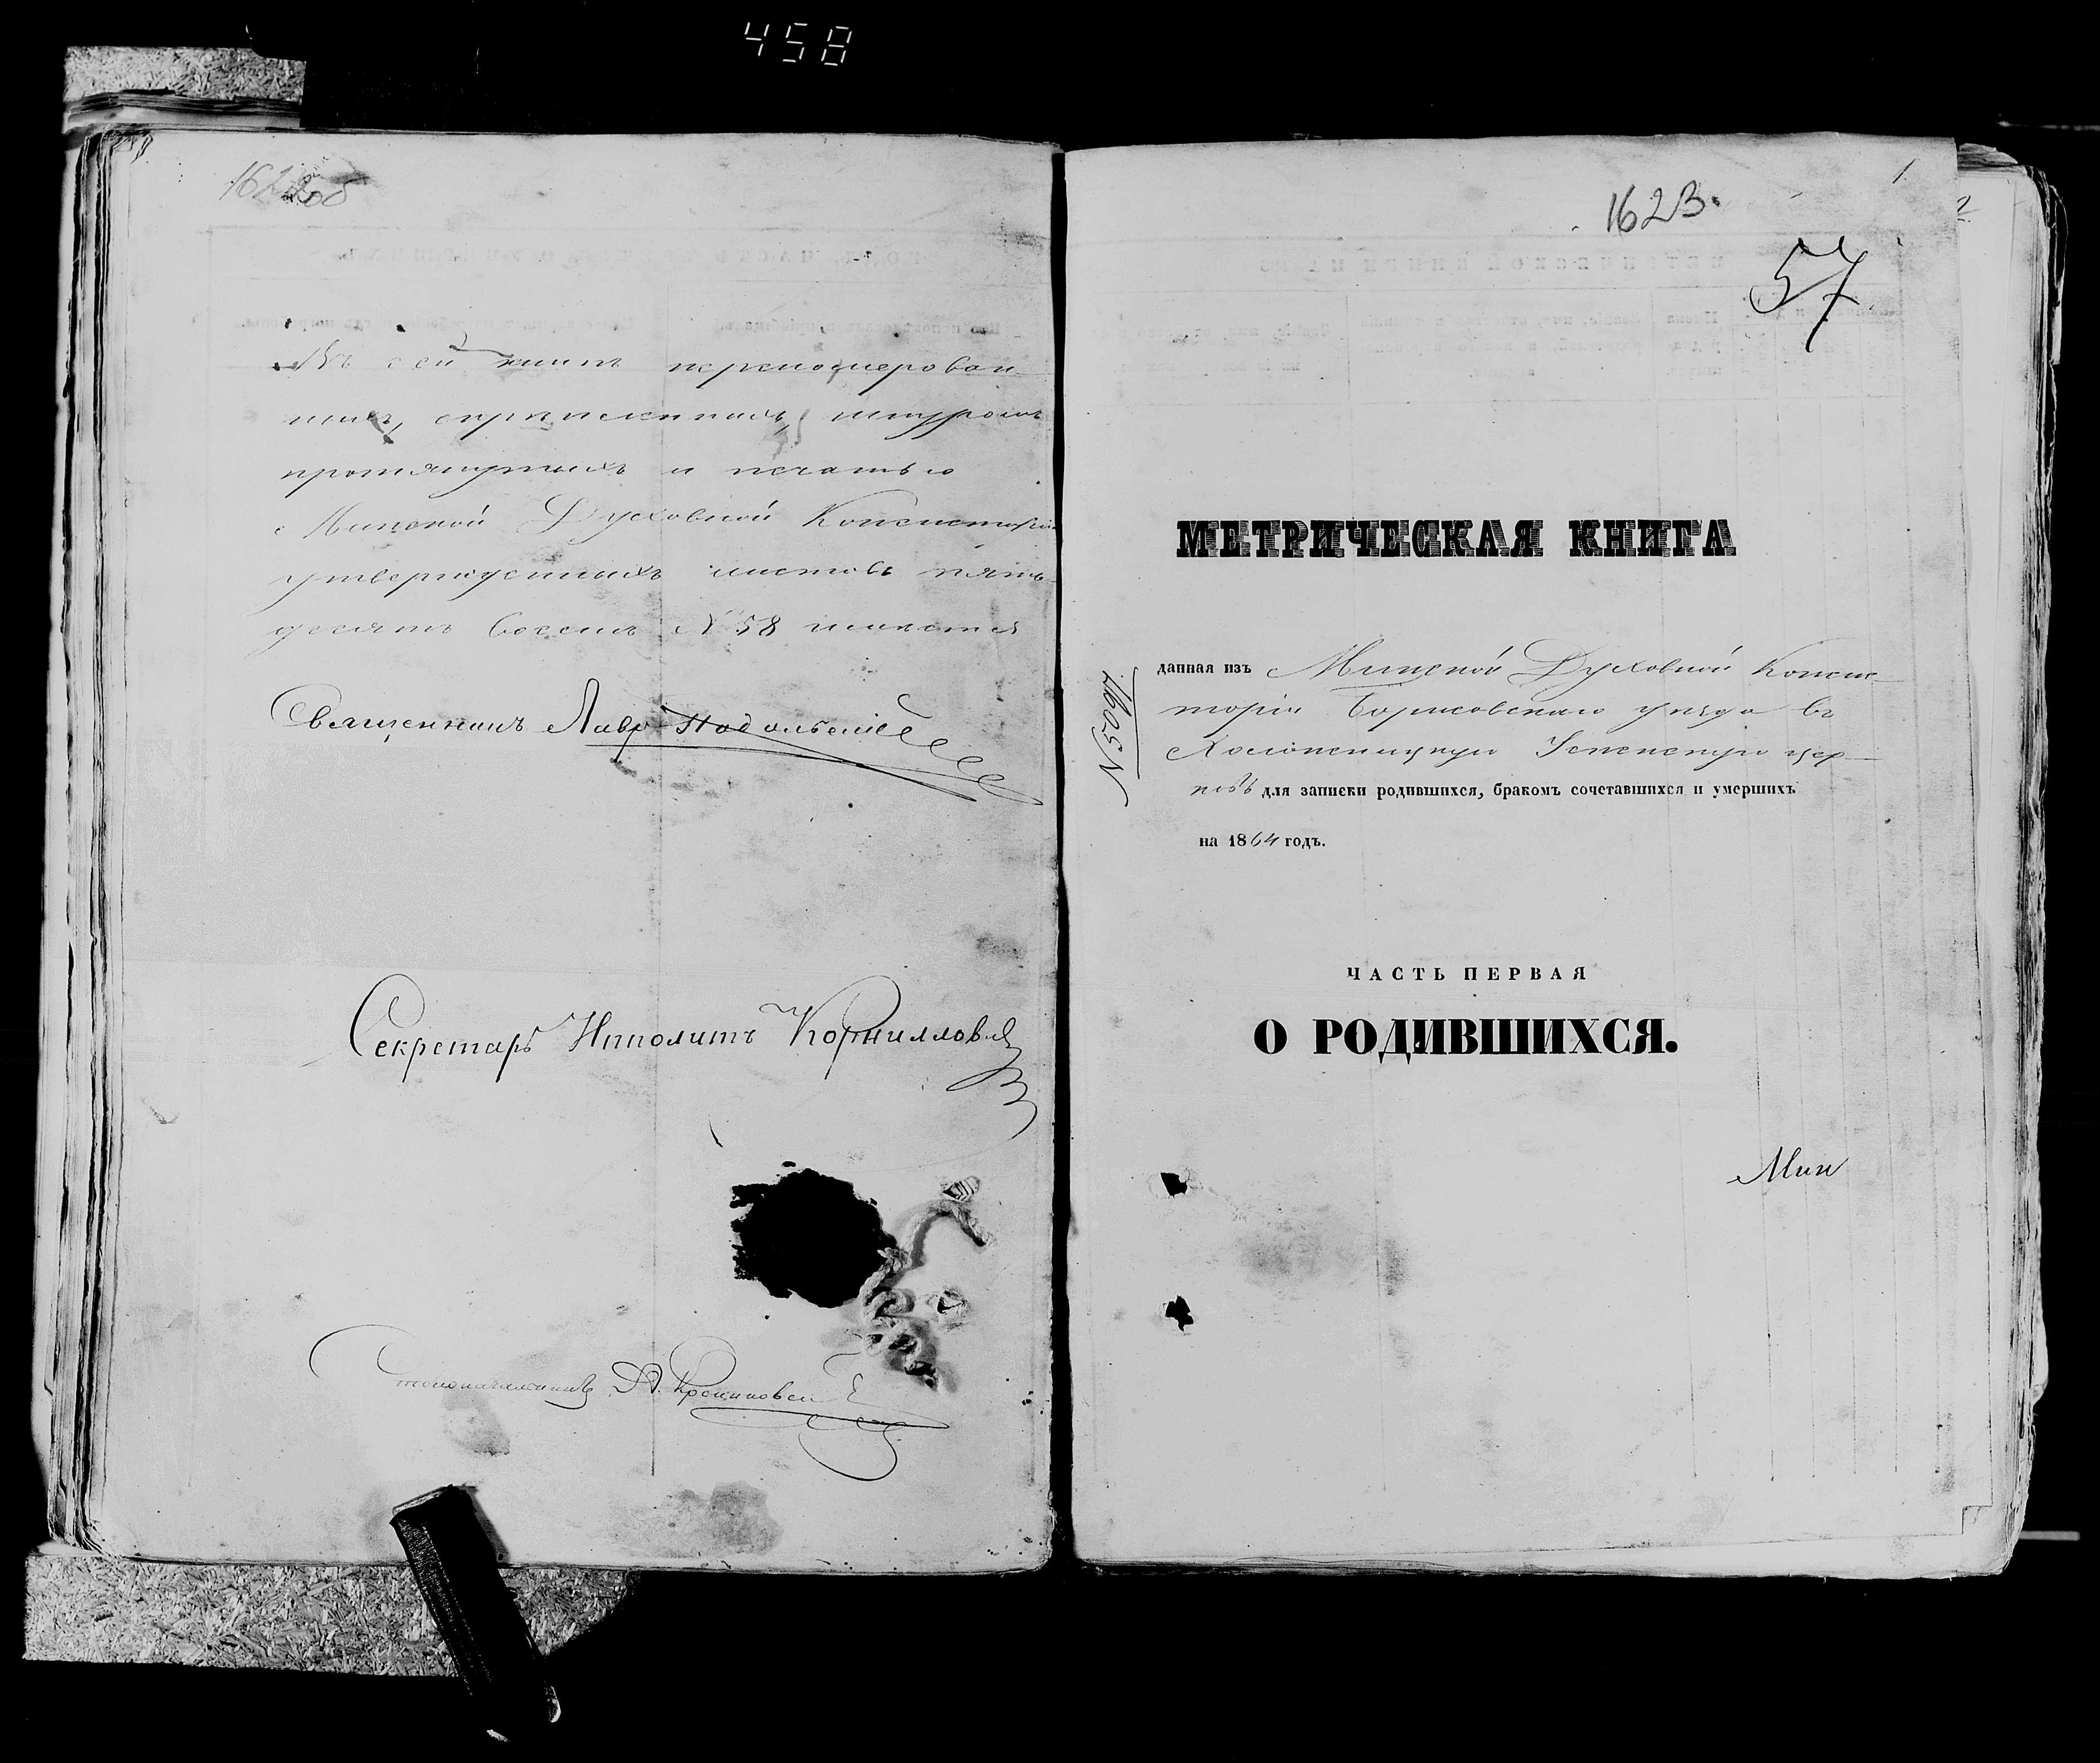 458
Въ сей книгѣ перенумерован-
ныхъ, скрѣпленныхъ, шнуромъ
протянутыхъ и печатью
Минской Духовной Консисторіи
утвержденныхъ листовъ пять-
десятъ восемь № 58 имѣется
Священникъ Лавр Подольскій
Секретарь Иполитъ Корнилловъ
Столоначальникъ
1
1623.
2
57
МЕТРИЧЕСКАЯ КНИГА
данная изъ Минской Духовной Консис-
торіи Борисовскаго уѣзда въ
Холопеницкую Успенскую цер-
ковь для записки родившихся, бракомъ сочетавшихся и умершихъ
на 1864 годъ.
ЧАСТЬ ПЕРВАЯ
О РОДИВШИХСЯ.
Мин